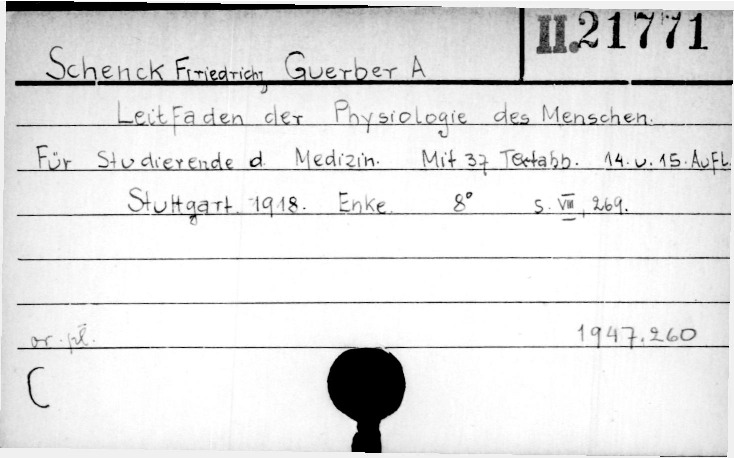 II. 21771
Schenck Friedrich, Guerber A
Leitfaden der Physiologie des Menschen.
Für Studierende d. Medizin. Mit 37 Textabb. 14. u. 15. Aufl.
Stuttgart. 1918. Enke. 8° S. VIII, 269.
or. pl. 1947.260
C